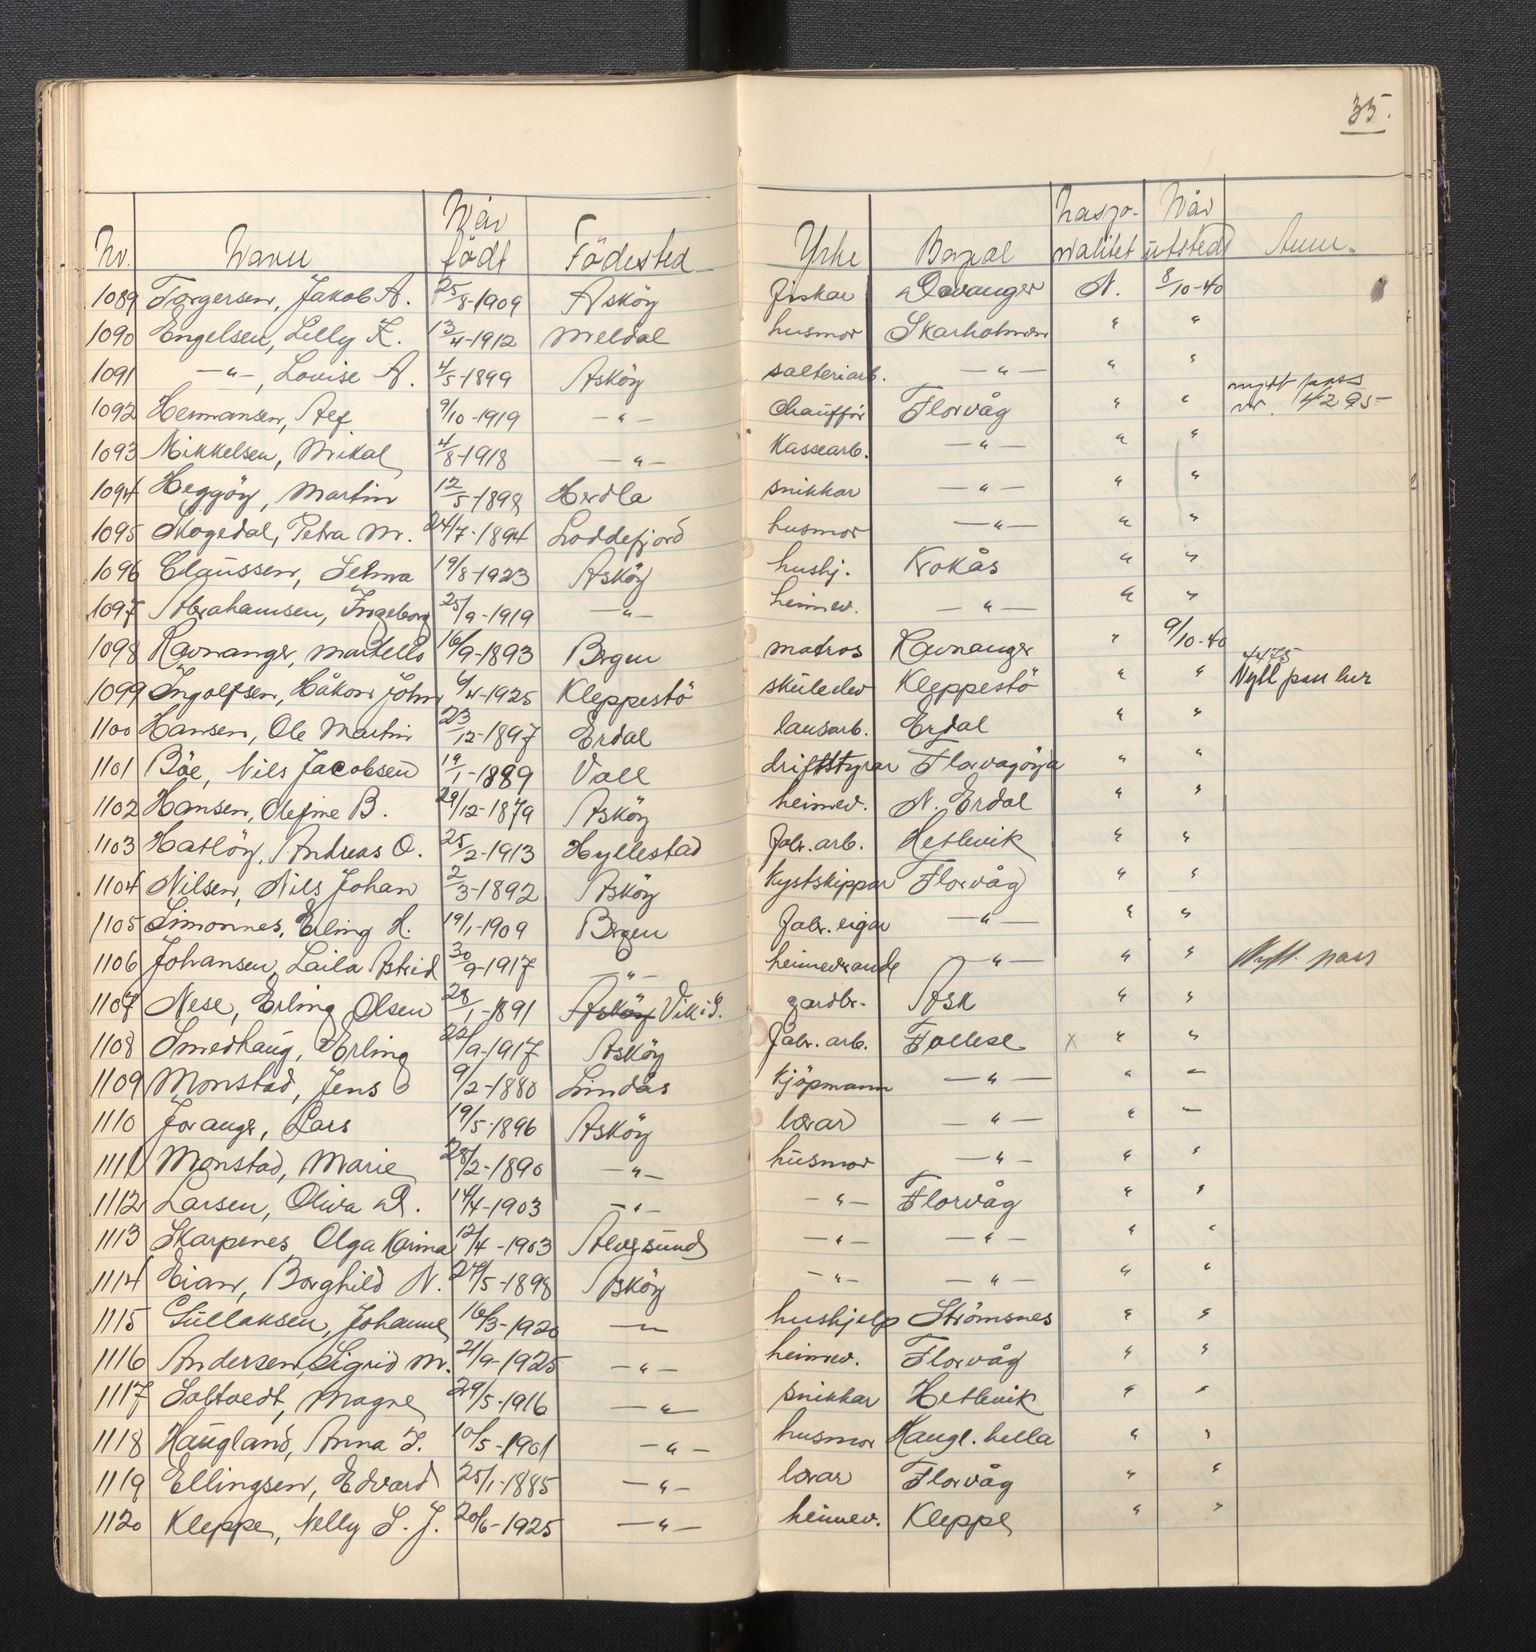 35.
Nr. Namn Når födt Födested Yrke Bopæl Nasjonalitet Når utstedt Anm.
1089 Torgersen, Jakob A. 25/8-1909 Asköy fiskar Davanger N. 8/10-40
1090 Engelsen, Lilly K. 13/4-1912 Meldal husmor Skarholmen " "
1091 —"—, Louise A. 4/5-1899 Asköy salteriarb. —"— " "
1092 Hermansen, Alf 9/10-1919 —"— chaufför Florvåg " " nytt pass nr. 4295
1093 Mikkelsen, Mikal 4/8-1918 —"— Kassearb. —"— " "
1094 Heggöy, Martin 12/5-1898 Herdla snikkar —"— " "
1095 Skogedal, Petra M. 24/7-1894 Loddefjord husmor —"— " "
1096 Claussen, Selma 19/8-1923 Asköy hushj. Krokås " "
1097 Abrahamsen, Ingeborg 25/9-1919 —"— heimev. —"— " "
1098 Ravnanger, Martello 16/9-1893 Bergen matros Ravnanger " 9/10-40
1099 Ingolfsen, Håkon John 6/4-1925 Kleppestö skuleelev Kleppestö " " 4475 Nytt pass
1100 Hansen, Ole Martin 23/12-1897 Erdal lausarb. Erdal " "
1101 Böe, Nils Jacobsen 19/1-1889 Voll driftstyrar Florvagöyа " "
1102 Hansen, Olefine B. 29/12-1879 Asköy heimev. N. Erdal " "
1103 Hatlöy, Andreas O. 25/2-1913 Hyllestad fabr. arb. Hetlevik " "
1104 Nilsen, Nils Johan 2/3-1892 Asköy Kystskippar Florvåg " "
1105 Simonnes, Erling H. 19/1-1909 Bergen fabr. eigar —"— " "
1106 Johansen, Laila Astrid 30/9-1917 —"— heimeverande —"— " " Nytt pass
1107 Nese, Erling Olsen 28/1-1891 Asköy Vik i S. gardbr. Ask " "
1108 Smedhaug, Erling 22/9-1917 Asköy fabr. arb. Follese x " "
1109 Monstad, Jens 9/2-1880 Lindås kjöpmann —"— " —
1110 Joranger, Lars 19/5-1896 Asköy lærar —"— " —
1111 Monstad, Marie 28/2-1890 —"— husmor —"— " "
1112 Larsen, Oliva D. 14/4-1903 —"— —"— Florvåg " "
1113 Skarpenes, Olga Karina 12/4-1903 Alversund —"— —"— " "
1114 Eian, Borghild N. 27/5-1898 Asköy —"— —"— " "
1115 Gullaksen, Johanne 16/3-1920 —"— hushjelp Strömsnes " "
1116 Andersen, Sigrid M. 21/9-1925 —"— heimev. Florvåg " "
1117 Soltvedt, Magne 29/5-1916 —"— snikkar Hetlevik " "
1118 Haugland, Anna J. 10/5-1901 —"— husmor Haugl. hella " "
1119 Ellingsen, Edvard 25/1-1885 —"— lærar Florvåg " "
1120 Kleppe, Nelly S. J. 20/6-1925 —"— heimev. Kleppe " "